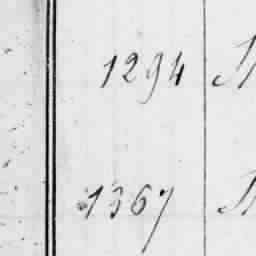 1294
1367